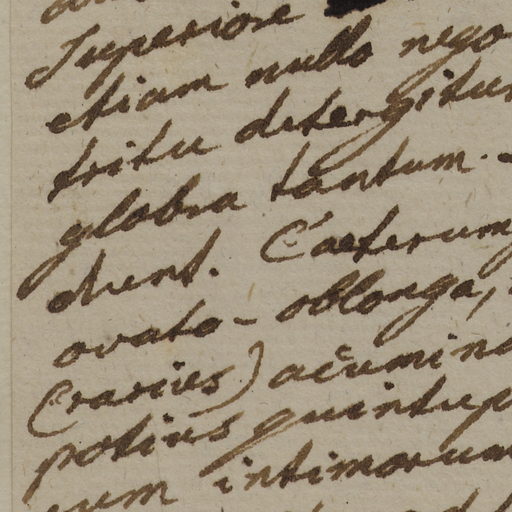 Superiore
etiam nullo nego
tritu detergitur
glabra tantum. -
dunt. Caeterum
ovato-oblonga,
(rarius) acumina
potius quintup
cum intimorum